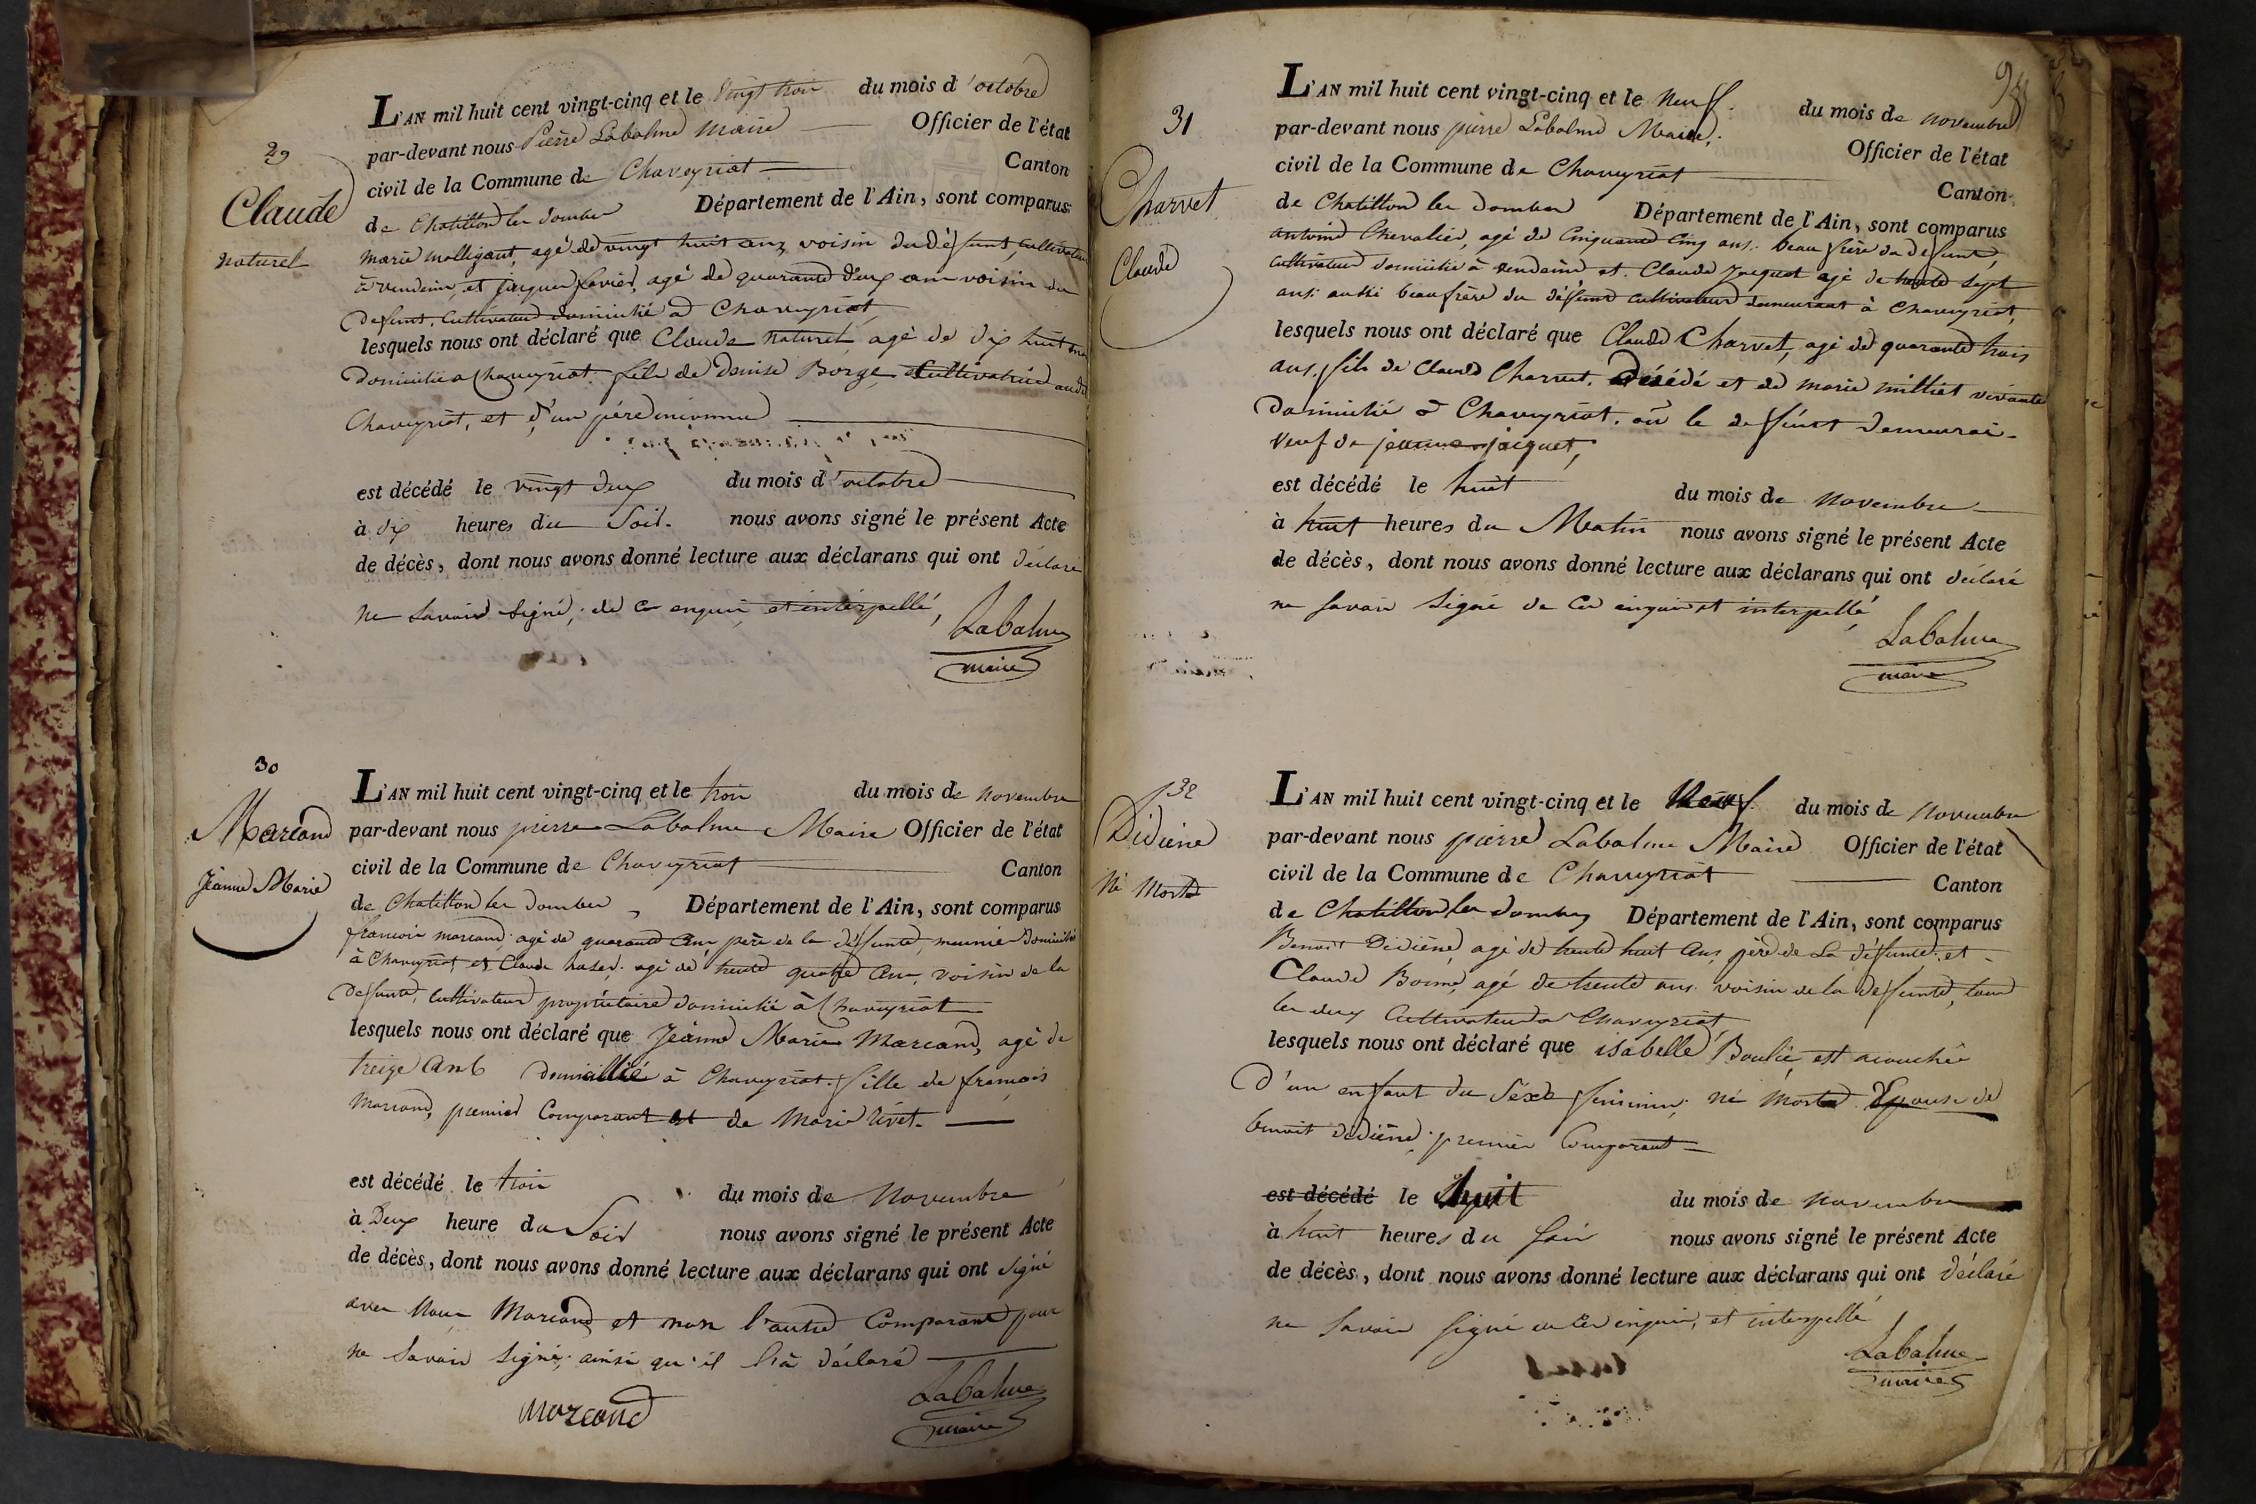 29
Claude
naturel
L'AN mil huit cent vingt-cinq et le vingt trois du mois d'octobre
par-devant nous Pierre Labalme Maire Officier de l'état
civil de la Commune de Chaveyriat Canton
de Chatillon les dombes Département de l'Ain, sont comparus
marie molligant, agé de vingt huit ans, voisin du défunt, cultivateur
à vendeins, et jacques favier, agé de quarante deux ans voisin du
defunt, Cultivateur domicilié a Chaveyriat
lesquels nous ont déclaré que Claude naturel, agé de dix huit ans
domicilié a Chaveyriat, fils de Denise Borge, Cultivatrice audit
Chaveyriat, et d'un père inconnu
est décédé le vingt deux du mois d'octobre
à dix heures du Soir. nous avons signé le présent Acte
de décès, dont nous avons donné lecture aux déclarans qui ont déclaré
ne Savoir Signé, de ce enquis, et interpellé,
Labalme
maire
30
Marcand
Jeanne Marie
L'AN mil huit cent vingt-cinq et le trois du mois de novembre
par-devant nous pierre Labalme Maire Officier de l'état
civil de la Commune de Chaveyriat Canton
de Chatillon les dombes, Département de l'Ain, sont comparus
francois marcand, agé de quarante ans père de la défunte, meunier domicilié
à Chaveyriat et Claude agé de trente quatre ans, voisin de la
defunte, Cultivateur propriétaire domicilié à Chaveyriat
lesquels nous ont déclaré que Jeanne Marie Marcand, agé de
treize ans domicillié à Chaveyriat, fille de françois
Marcand, premier Comparant et de Marie Rivet.
est décédé le trois du mois de Novembre
à Deux heure du Soir nous avons signé le présent Acte
de décès, dont nous avons donné lecture aux déclarans qui ont signé
avec Nous Marcand et non l'autre Comparant pour
ne Savoir signé, ainsi qu'il l'a déclaré
Marcand
Labalme
maire
31
Charvet
Claude
L'AN mil huit cent vingt-cinq et le neuf. du mois de novembre
par-devant nous pierre Labalme Maire, Officier de l'état
civil de la Commune de Chaveyriat Canton
de Chatillon les dombes Département de l'Ain, sont comparus
antoine Chevalier, agé de Cinquante Cinq ans. beau frère du defunt,
cultivateur domicilié à vendeins et Claude Jacquet agé de trente sept
ans aussi beaufrère du défunt cultivateur demeurant à Chaveyriat,
lesquels nous ont déclaré que Claude Charvet, agé de quarante trois
ans. fils de Claude Charvet, Décédé et de marie milliet vivante
domicilié à Chaveyriat, où le deffunt demeurai
veuf de jeanne jacquet,
est décédé le huit du mois de novembre
à huit heures du Matin nous avons signé le présent Acte
de décès, dont nous avons donné lecture aux déclarans qui ont déclaré
ne Savoir Signé de Ce enquis et interpellé
Labalme
maire
32
Didiene
né Morte
L'AN mil huit cent vingt-cinq et le Neuf. du mois de Novembre
par-devant nous pierre Labalme Maire Officier de l'état
civil de la Commune de Chaveyriat Canton
de Chatillon les dombes Département de l'Ain, sont comparus
Benoit Didiène, agé de trente huit ans, père de La défunte, et
Claude Bonne, agé de trente ans. voisin de la defunte, tous
les deux Cultivateur a Chaveyriat
lesquels nous ont déclaré que isabelle Boulié, est acouchée
d'un enfant du Séxe féminin, né Morte. Epouse de
benoit dediène, premier Comparant
est décédé le huit du mois de novembre
à huit heures du Soir nous avons signé le présent Acte
de décès, dont nous avons donné lecture aux déclarans qui ont déclaré
ne Savoir signé enquis, et interpellé
Labalme
maire